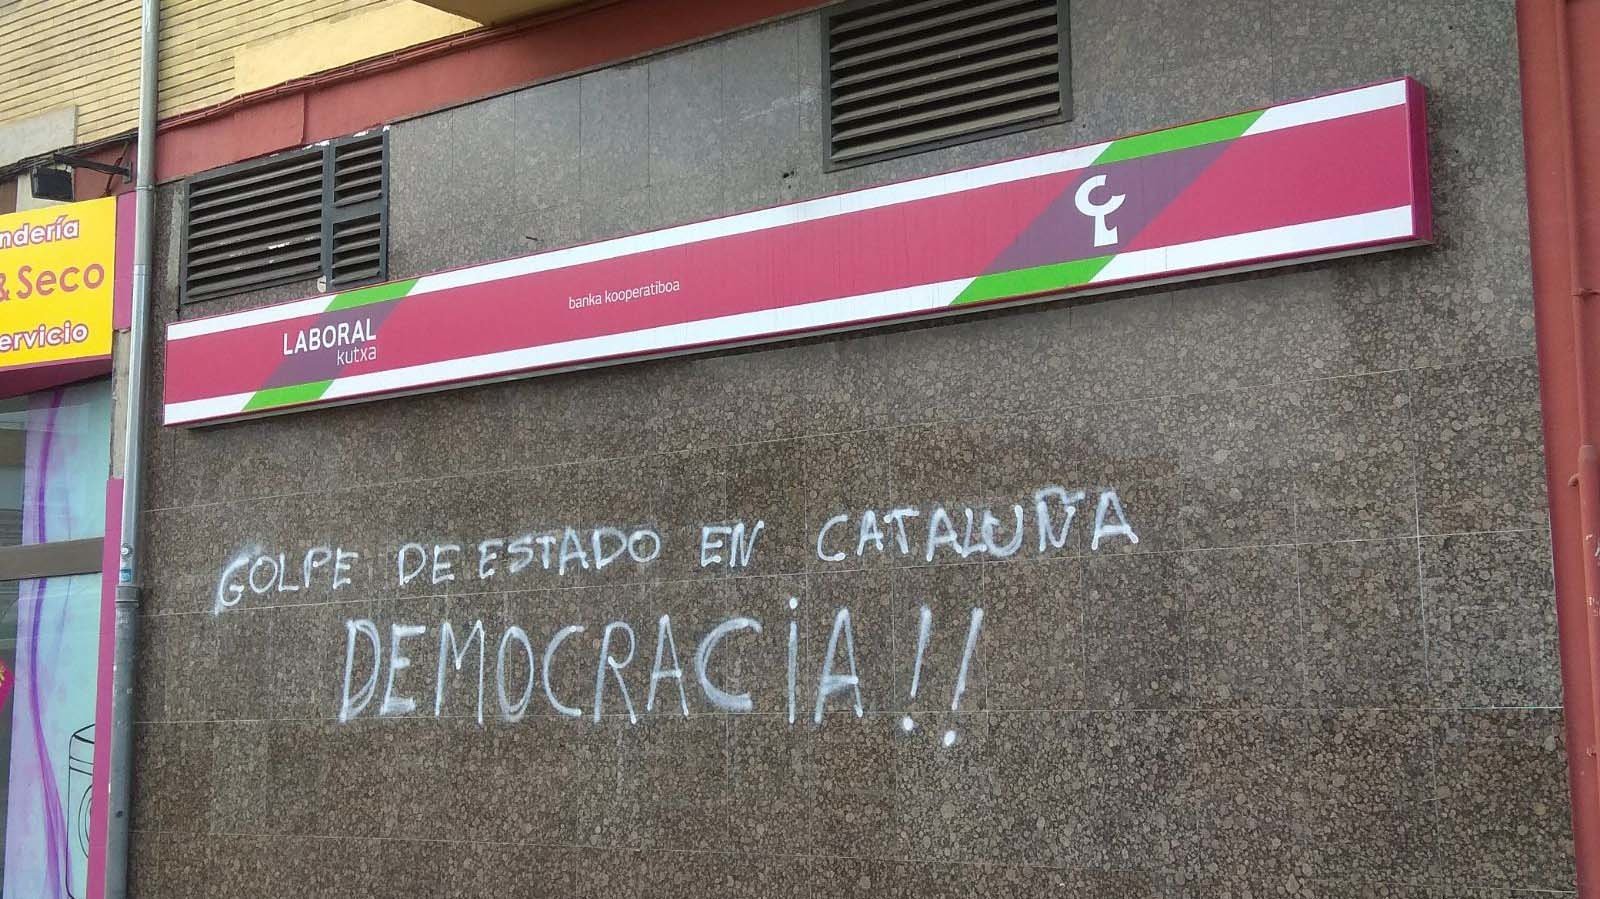 ndería
& Seco
ervicio
LABORAL
kutxa
banka kooperatiboa
GOLPE DE ESTADO EN CATALUÑA
DEMOCRACiA!!